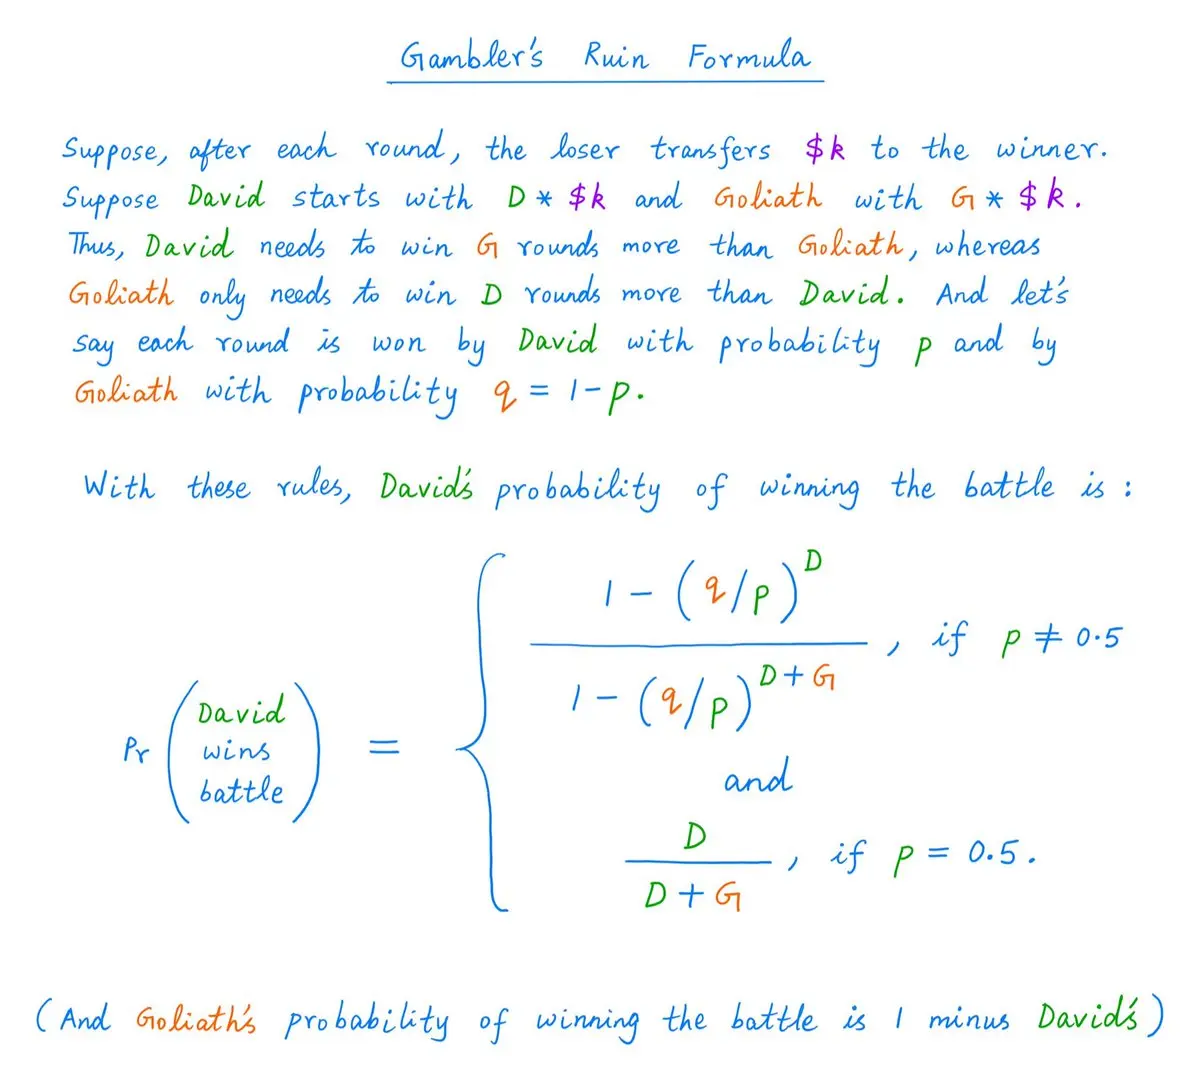 Gambler's Ruin Formula
Suppose, after each round, the loser transfers $k to the winner.
Suppose David starts with D * $k and Goliath with G * $k.
Thus, David needs to win G rounds more than Goliath, whereas
Goliath only needs to win D rounds more than David. And let's
say each round is won by David with probability p and by
Goliath with probability q = 1-p.
With these rules, David's probability of winning the battle is :
Pr ( David wins battle ) = {
1 - (q/p)^D
1 - (q/p)^D+G
, if p ≠ 0.5
and
D
D + G
, if p = 0.5.
(And Goliath's probability of winning the battle is 1 minus David's)